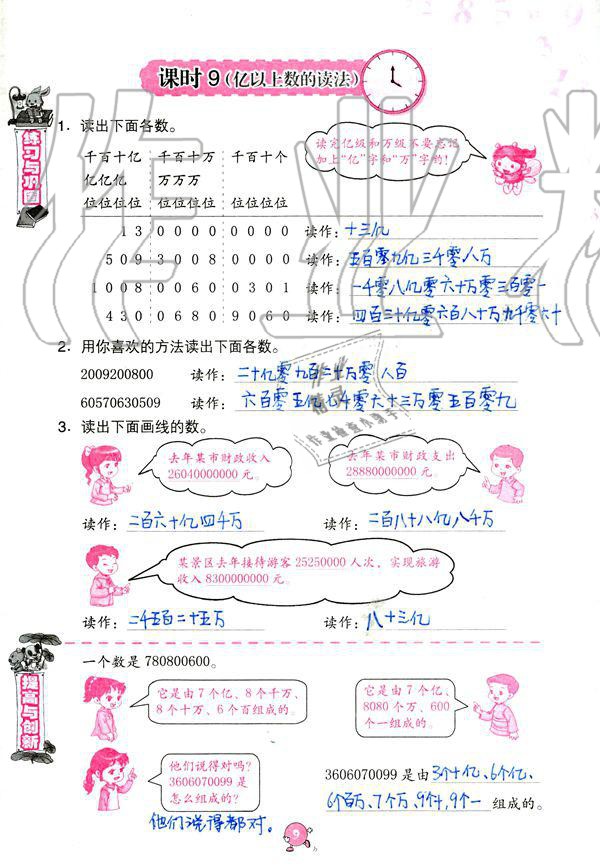 课时 9(亿以上数的读法)
练习与巩固
1. 读出下面各数。
读完亿级和万级不要忘记
加上“亿”字和“万”字哟!
千百十亿 千百十万 千百十个
亿亿亿 万万万
位位位位 位位位位 位位位位
1 3 0 0 0 0 0 0 0 0 读作: 十三亿
5 0 9 3 0 0 8 0 0 0 0 读作: 五百零九亿三千零八万
1 0 0 8 0 0 6 0 0 3 0 1 读作: 一千零八亿零六十万零三百零一
4 3 0 0 6 8 0 9 0 6 0 读作: 四百三十亿零六百八十万九千零六十
2. 用你喜欢的方法读出下面各数。
2009200800 读作: 二十亿零九百二十万零八百
60570630509 读作: 六百零五亿七千零六十三万零五百零九
3. 读出下面画线的数。
去年某市财政收入
26040000000 元。
去年某市财政支出
28880000000 元。
读作: 二百六十亿四千万
读作: 二百八十八亿八千万
某景区去年接待游客 25250000 人次,实现旅游
收入 8300000000 元。
读作: 二千五百二十五万
读作: 八十三亿
提高与创新
一个数是 780800600。
它是由 7 个亿、8 个千万、
8 个十万、6 个百组成的。
它是由 7 个亿、
8080 个万、600
个一组成的。
他们说得对吗?
3606070099 是
怎么组成的?
3606070099 是由3个十亿、6个亿、
6个百万、7个万、9个十、9个一 组成的。
他们说得都对。
9